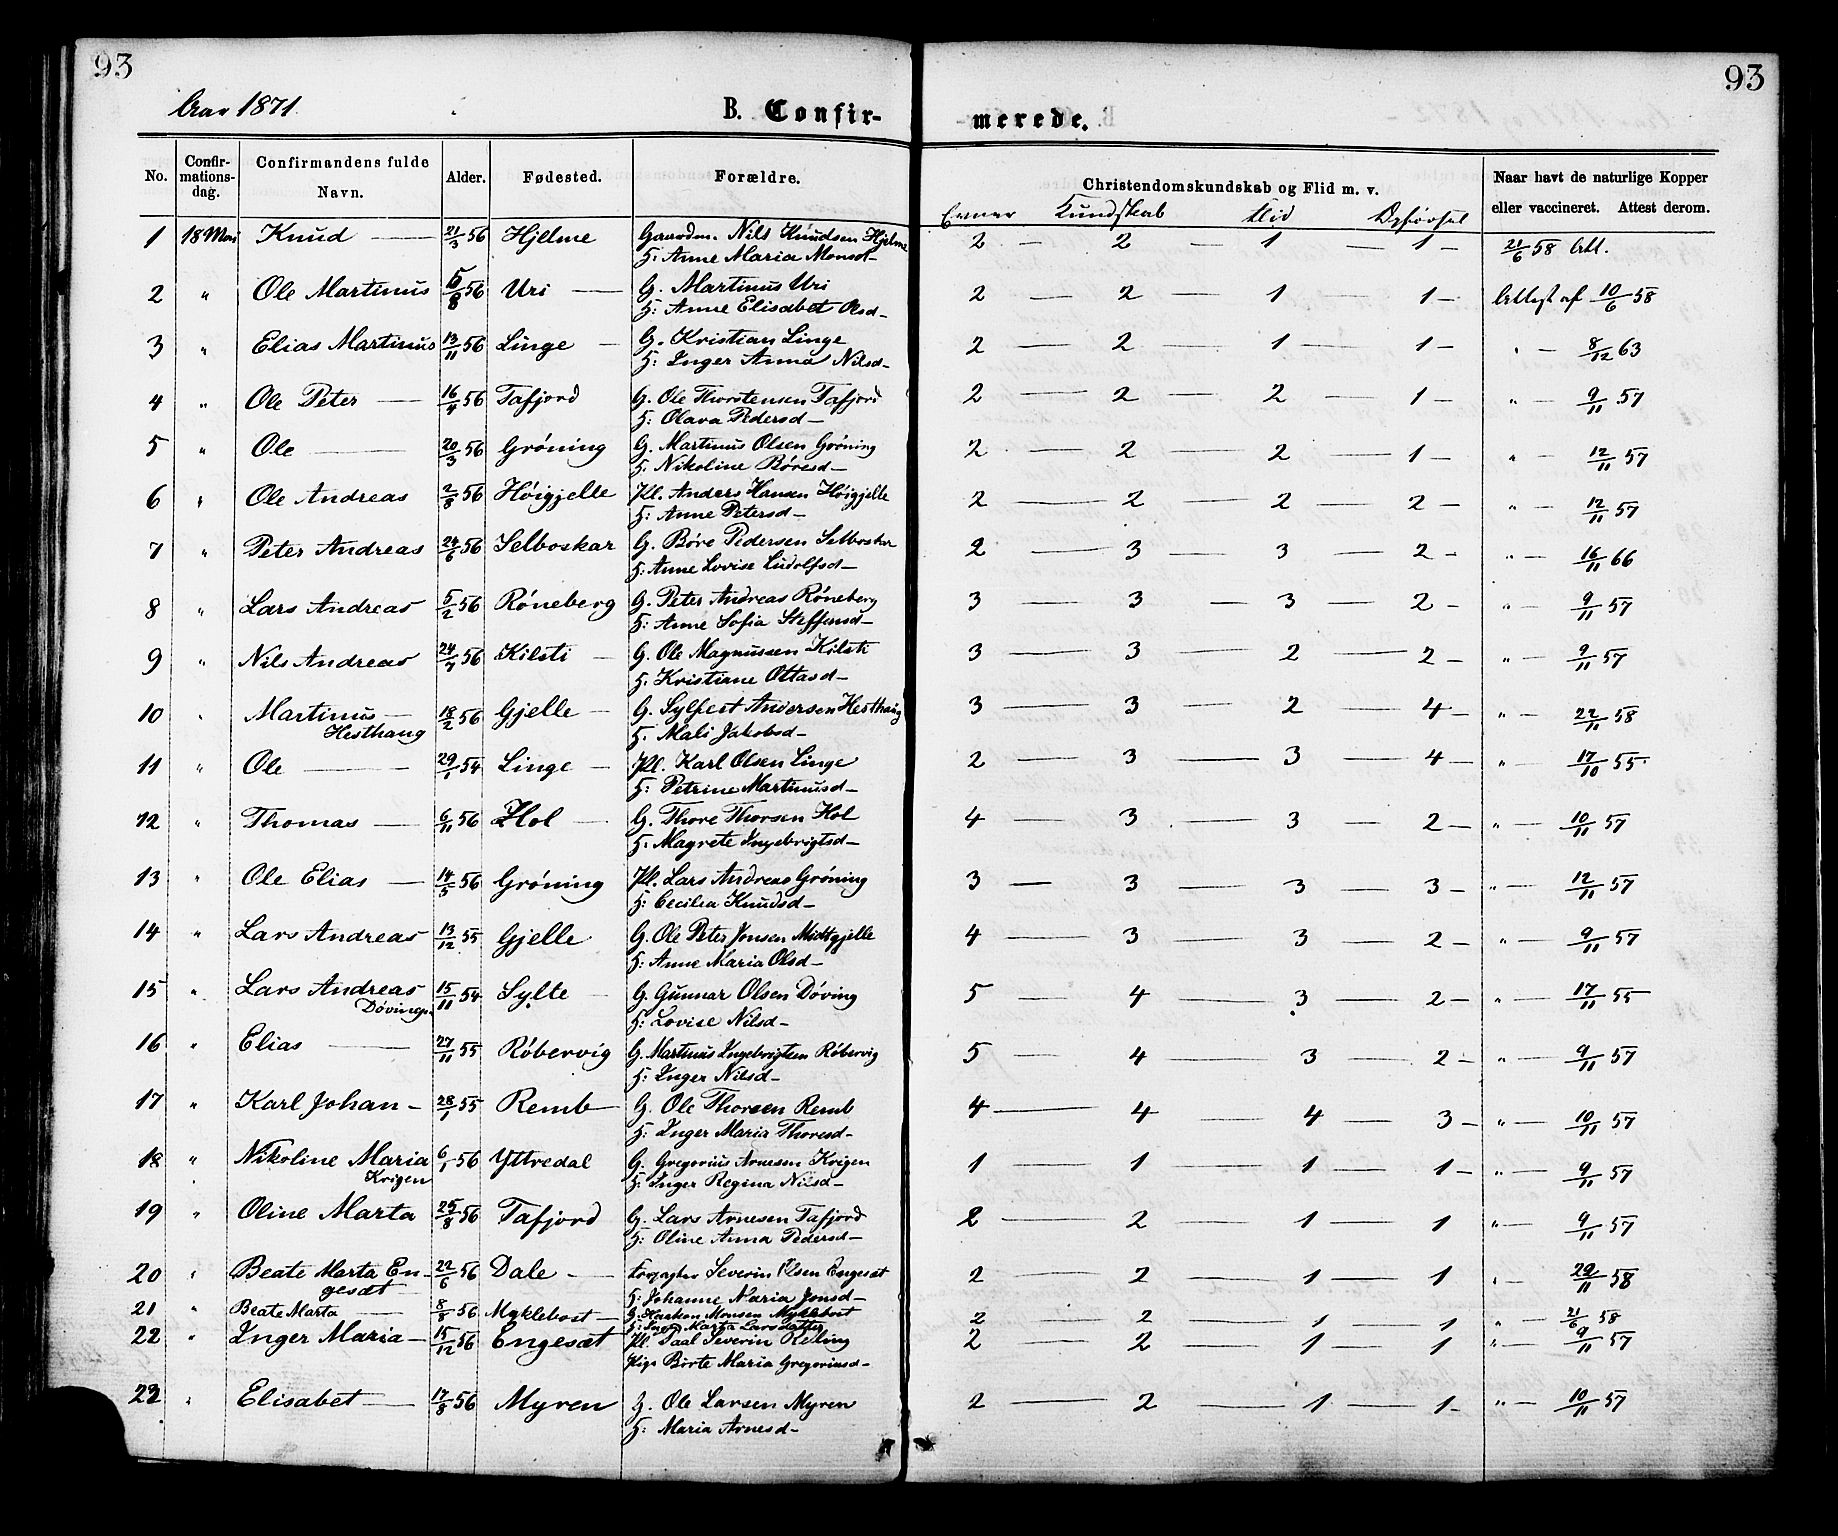 93
93
Aar 1871.
B. Confir-
merede.
No.
Confir-
mations-
dag.
Confirmandens fulde
Navn.
Alder.
Fødested.
Forældre.
Christendomskundskab og Flid m. v.
Evner Kundskab Flid Opførsel
Naar havt de naturlige Kopper
eller vaccineret. Attest derom.
1 18 Mai Knud — 21/3 56 Hjelme Gaardm. Nils Knudsen Hjelme 2 — 2 — 1 — 1 — 21/6 58 Att.
H: Anne Maria Monsd—
2 " Ole Martinus 5/8 56 Uri — G. Martinus Uri 2 — 2 — 1 — 1 — Attest af 10/6 58
H: Anne Elisabet Olsd—
3 " Elias Martinus 13/11 56 Linge — G. Kristian Linge 2 — 2 1 — 1 — " — 8/12 63
H: Inger Anna Nilsd—
4 " Ole Peter — 16/4 56 Tafjord G. Ole Thorstensen Tafjord 2 — 2 — 2 — 1 — " — 9/11 57
H: Olava Pedersd—
5 " Ole — 20/3 56 Grôning G. Martinus Olsen Grôning 2 — 2 — 2 — 1 — " — 12/11 57
H. Nikoline Bôresd—
6 " Ole Andreas 2/8 56 Hôigjelle Pl. Anders Hansen Hôigjelle 2 — 2 — 2 — 2 — " — 12/11 57
H: Anne Petersd—
7 " Peter Andreas 24/6 56 Selboskar G. Bôre Pedersen Selboskar 2 — 3 — 3 — 2 — " — 16/11 66
H: Anne Lovise Ludolfsd—
8 " Lars Andreas 5/2 56 Rôneberg G. Peter Andreas Rôneberg 3 — 3 — 3 — 2 — " — 9/11 57
H: Anne Sofia Steffensd—
9 " Nils Andreas 24/7 56 Kilsti — G. Ole Magnussen Kilsti 3 — 3 — 2 — 2 — " — 9/11 57
H. Kristiane Ottasd—
10 " Martinus — 18/2 56 Gjelle — G. Sylfest Andersen Hesthaug 3 — 3 — 2 — 4 — " — 22/11 58
Hesthaug H. Mali Jakobsd—
11 " Ole — 29/1 54 Linge — Pl. Karl Olsen Linge 2 — 3 — 3 — 4 — " — 17/10 55
H: Petrine Martinusd—
12 " Thomas — 6/11 56 Hol — G. Thore Thorsen Hol 4 — 3 — 3 — 2 — " — 10/11 57
H. Magrete Ingebrigtsd—
13 " Ole Elias — 14/5 56 Grôning Pl. Lars Andreas Grôning 3 — 3 — 3 — 3 — " — 12/11 57
H: Cecilia Knudsd—
14 " Lars Andreas 13/12 55 Gjelle G. Ole Peter Jonsen Midtgjelle 4 — 3 — 3 — 2 — " — 9/11 57
H: Anne Maria Olsd—
15 " Lars Andreas 15/11 54 Sylte — G. Gunnar Olsen Dôving 5 — 4 — 3 — 2 — " — 17/11 55
H: Lovise Nilsd—
16 " Elias — 27/11 55 Rôbervig G. Martinus Ingebrigtsen Rôbervig 5 — 4 — 3 — 2 — " — 9/11 57
H: Inger Nilsd—
17 " Karl Johan — 28/1 55 Remb — G. Ole Thorsen Remb 4 — 4 — 4 — 3 — " — 10/11 57
H: Inger Maria Thoresd—
18 " Nikoline Maria 6/1 56 Yttredal G. Gregorius Arnesen Krigen 1 — 1 — 1 — 1 — " — 9/11 57
Krigen H: Inger Regina Nilsd—
19 " Oline Marta 25/8 56 Tafjord G. Lars Arnesen Tafjord 2 — 2 — 1 — 1 " — 9/11 57
H: Oline Anna Pedersd—
20 " Beate Marta En- 22/6 56 Dale — Severin Olsen Engesæt 2 — 2 — 1 — 1 " — 58
gesæt H: Johanne Maria Jonsd—
21 " Beate Marta — 8/8 56 Myklebost — G. Haakon Monsen Myklebost 2 — 2 — 1 — 1 " — 21/6 58
H: Inger Marta Larsdatter
22 " Inger Maria — 15/12 56 Engesæt Pl. Paal Severin Relling 2 — 2 — 1 — 1 " — 9/11 57
Pige Bôrte Maria Gregoriusd—
23 " Elisabet — 17/8 56 Myren G. Ole Larsen Myren 2 — 2 — 1 — 1 — " — 10/11 57
H: Maria Arnesd—